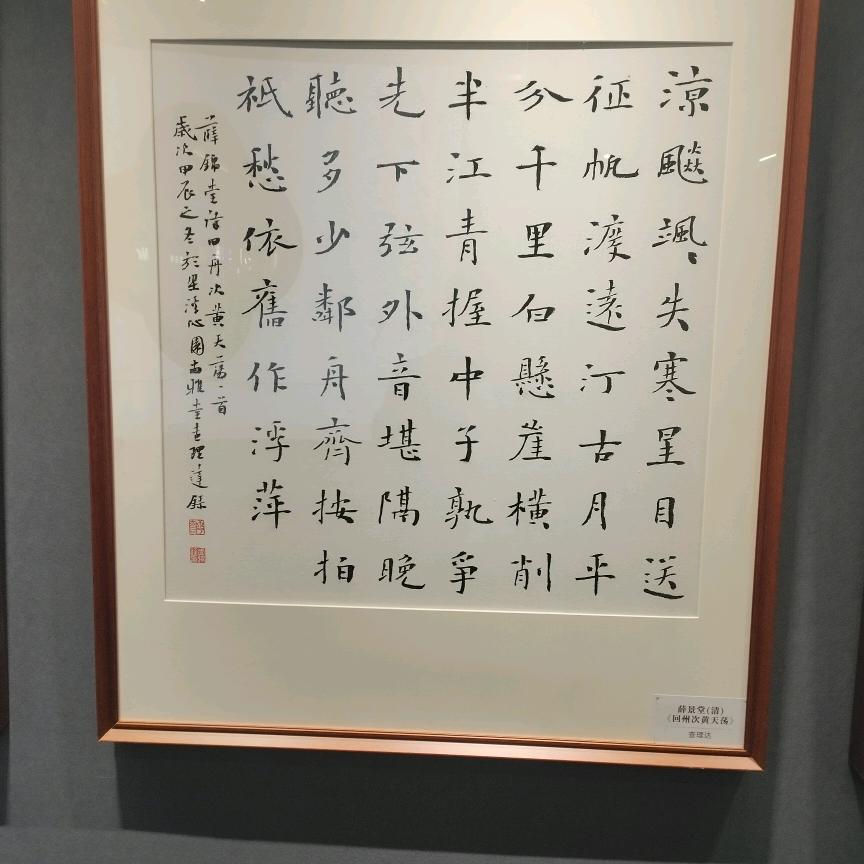 涼飈颯〻失寒星目送
征帆渡遠汀古月平
分千里白懸崖橫削
半江青握中子孰爭
先下弦外音堪隔晚
聽多少鄰舟齊按拍
祇愁依舊作浮萍
薛錦堂詩回舟次黃天蕩一首
歲次甲辰之冬於星渚心園尚雅堂查理達錄
薛景堂(清)
《回州次黄天荡》
查理达